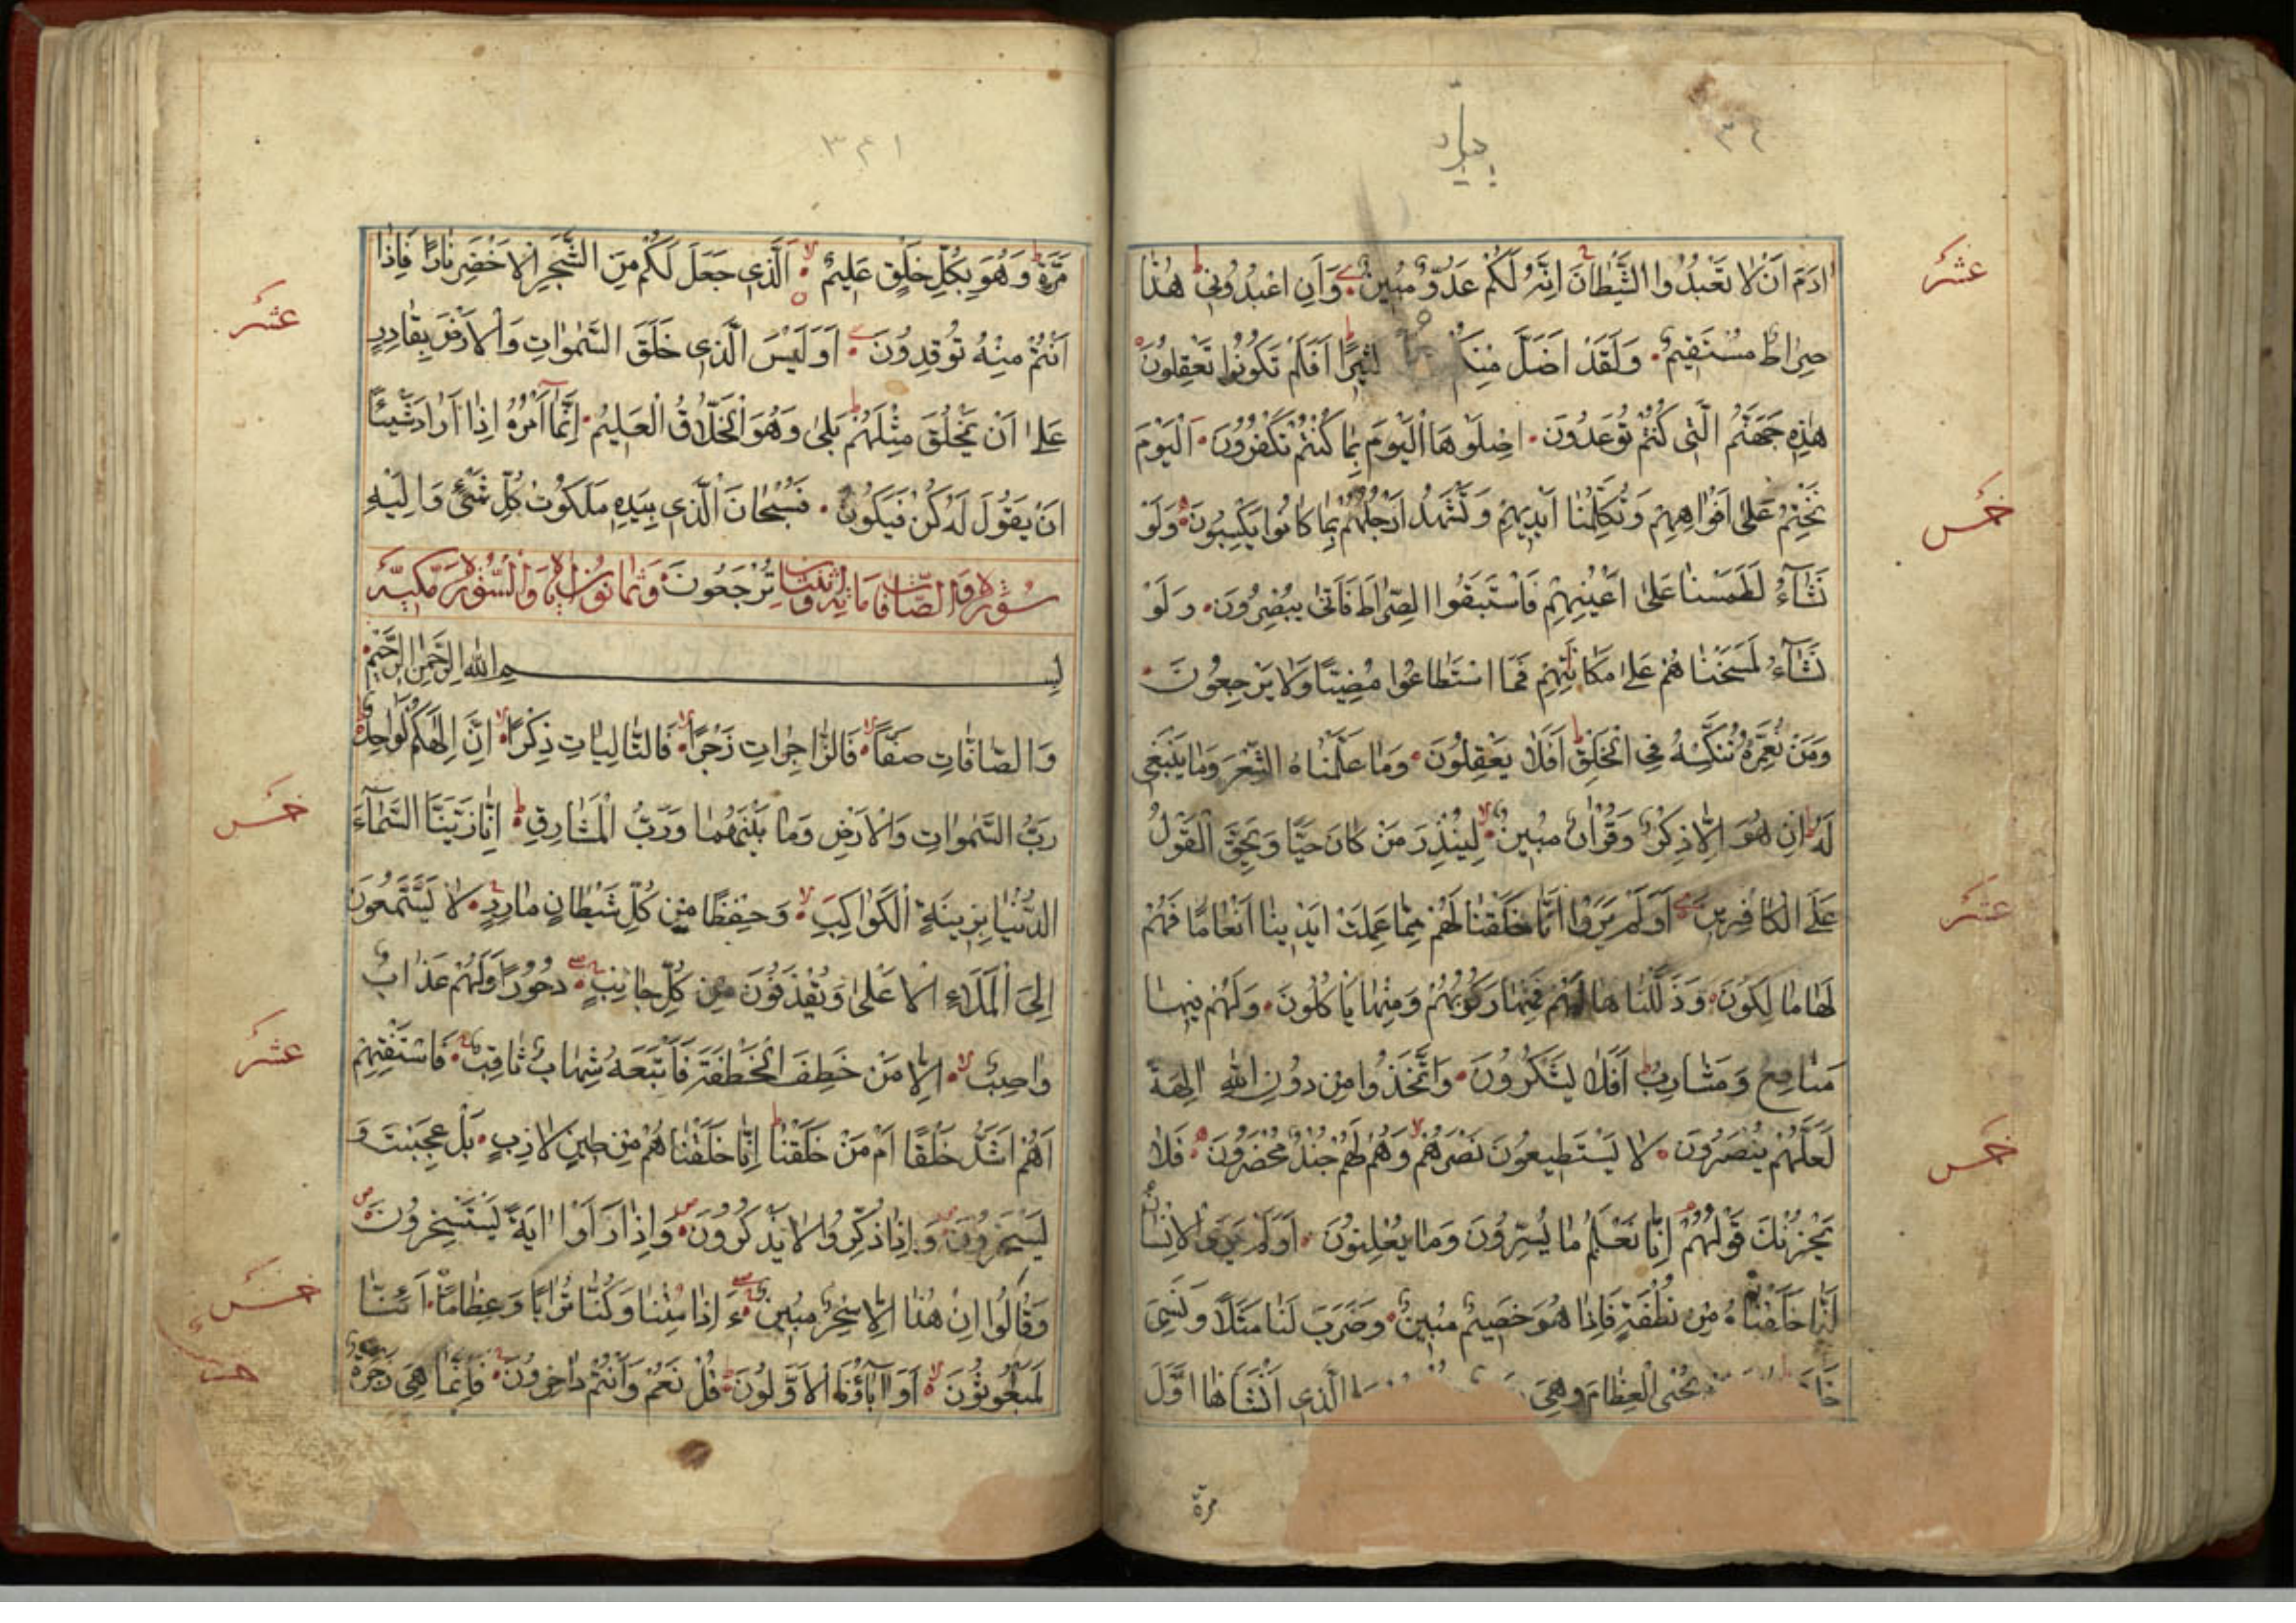 عشر
ادَمَ اَنْ لَا تَعْبُدُوا الشَّيْطَانَ اِنَّهُ لَكُمْ عَدُوٌّ مُبِينٌ وَاَنِ اعْبُدُونِي هٰذَا
صِرَاطٌ مُسْتَقِيمٌ وَلَقَدْ اَضَلَّ مِنْكُمْ اَفَلَمْ تَكُونُوا تَعْقِلُونَ
هٰذِهِ جَهَنَّمُ الَّتِي كُنْتُمْ تُوعَدُونَ اِصْلَوْهَا الْيَوْمَ بِمَا كُنْتُمْ تَكْفُرُونَ اَلْيَوْمَ
خمس
نَخْتِمُ عَلٰى اَفْوَاهِهِمْ وَتُكَلِّمُنَا اَيْدِيهِمْ وَتَشْهَدُ اَرْجُلُهُمْ بِمَا كَانُوا يَكْسِبُونَ وَلَوْ
نَشَآءُ لَطَمَسْنَا عَلٰى اَعْيُنِهِمْ فَاسْتَبَقُوا الصِّرَاطَ فَاَنّٰى يُبْصِرُونَ وَلَوْ
نَشَآءُ لَمَسَخْنَاهُمْ عَلٰى مَكَانَتِهِمْ فَمَا اسْتَطَاعُوا مُضِيًّا وَلَا يَرْجِعُونَ
وَمَنْ نُعَمِّرْهُ نُنَكِّسْهُ فِي الْخَلْقِ اَفَلَا يَعْقِلُونَ وَمَا عَلَّمْنَاهُ الشِّعْرَ وَمَا يَنْبَغِي
لَهُ اِنْ هُوَ اِلَّا ذِكْرٌ وَقُرْاٰنٌ مُبِينٌ لِيُنْذِرَ مَنْ كَانَ حَيًّا وَيَحِقَّ الْقَوْلُ
عشر
عَلَى الْكَافِرِينَ اَوَلَمْ يَرَوْا اَنَّا خَلَقْنَا لَهُمْ مِمَّا عَمِلَتْ اَيْدِينَا اَنْعَامًا فَهُمْ
لَهَا مَالِكُونَ وَذَلَّلْنَاهَا لَهُمْ فَمِنْهَا رَكُوبُهُمْ وَمِنْهَا يَاْكُلُونَ وَلَهُمْ فِيهَا
مَنَافِعُ وَمَشَارِبُ اَفَلَا يَشْكُرُونَ وَاتَّخَذُوا مِنْ دُونِ اللّٰهِ اٰلِهَةً
خمس
لَعَلَّهُمْ يُنْصَرُونَ لَا يَسْتَطِيعُونَ نَصْرَهُمْ وَهُمْ لَهُمْ جُنْدٌ مُحْضَرُونَ فَلَا
يَحْزُنْكَ قَوْلُهُمْ اِنَّا نَعْلَمُ مَا يُسِرُّونَ وَمَا يُعْلِنُونَ اَوَلَمْ يَرَ الْاِنْسَانُ
اَنَّا خَلَقْنَاهُ مِنْ نُطْفَةٍ فَاِذَا هُوَ خَصِيمٌ مُبِينٌ وَضَرَبَ لَنَا مَثَلًا وَنَسِيَ
يُحْيِي الْعِظَامَ وَهِيَ الَّذِي اَنْشَاَهَا اَوَّلَ
مرة
٣٤١
عشر
مَرَّةٍ وَهُوَ بِكُلِّ خَلْقٍ عَلِيمٌ اَلَّذِي جَعَلَ لَكُمْ مِنَ الشَّجَرِ الْاَخْضَرِ نَارًا فَاِذَا
اَنْتُمْ مِنْهُ تُوقِدُونَ اَوَلَيْسَ الَّذِي خَلَقَ السَّمٰوَاتِ وَالْاَرْضَ بِقَادِرٍ
عَلٰى اَنْ يَخْلُقَ مِثْلَهُمْ بَلٰى وَهُوَ الْخَلَّاقُ الْعَلِيمُ اِنَّمَا اَمْرُهُ اِذَا اَرَادَ شَيْئًا
اَنْ يَقُولَ لَهُ كُنْ فَيَكُونُ فَسُبْحَانَ الَّذِي بِيَدِهِ مَلَكُوتُ كُلِّ شَيْءٍ وَاِلَيْهِ
سُورَةُ وَالصَّافَّاتِ مائة واثنتان تُرْجَعُونَ وثمانون مكية
بِسْمِ اللّٰهِ الرَّحْمٰنِ الرَّحِيمِ
وَالصَّافَّاتِ صَفًّا فَالزَّاجِرَاتِ زَجْرًا فَالتَّالِيَاتِ ذِكْرًا اِنَّ اِلٰهَكُمْ لَوَاحِدٌ
خمس
رَبُّ السَّمٰوَاتِ وَالْاَرْضِ وَمَا بَيْنَهُمَا وَرَبُّ الْمَشَارِقِ اِنَّا زَيَّنَّا السَّمَآءَ
الدُّنْيَا بِزِينَةٍ الْكَوَاكِبِ وَحِفْظًا مِنْ كُلِّ شَيْطَانٍ مَارِدٍ لَا يَسَّمَّعُونَ
اِلَى الْمَلَاءِ الْاَعْلٰى وَيُقْذَفُونَ مِنْ كُلِّ جَانِبٍ دُحُورًا وَلَهُمْ عَذَابٌ
عشر
وَاصِبٌ اِلَّا مَنْ خَطِفَ الْخَطْفَةَ فَاَتْبَعَهُ شِهَابٌ ثَاقِبٌ فَاسْتَفْتِهِمْ
اَهُمْ اَشَدُّ خَلْقًا اَمْ مَنْ خَلَقْنَا اِنَّا خَلَقْنَاهُمْ مِنْ طِينٍ لَازِبٍ بَلْ عَجِبْتَ وَ
يَسْخَرُونَ وَاِذَا ذُكِّرُوا لَا يَذْكُرُونَ وَاِذَا رَاَوْا اٰيَةً يَسْتَسْخِرُونَ
خمس
وَقَالُوا اِنْ هٰذَا اِلَّا سِحْرٌ مُبِينٌ ءَاِذَا مِتْنَا وَكُنَّا تُرَابًا وَعِظَامًا اَئِنَّا
لَمَبْعُوثُونَ اَوَاٰبَآؤُنَا الْاَوَّلُونَ قُلْ نَعَمْ وَاَنْتُمْ دَاخِرُونَ فَاِنَّمَا هِيَ زَجْرَةٌ